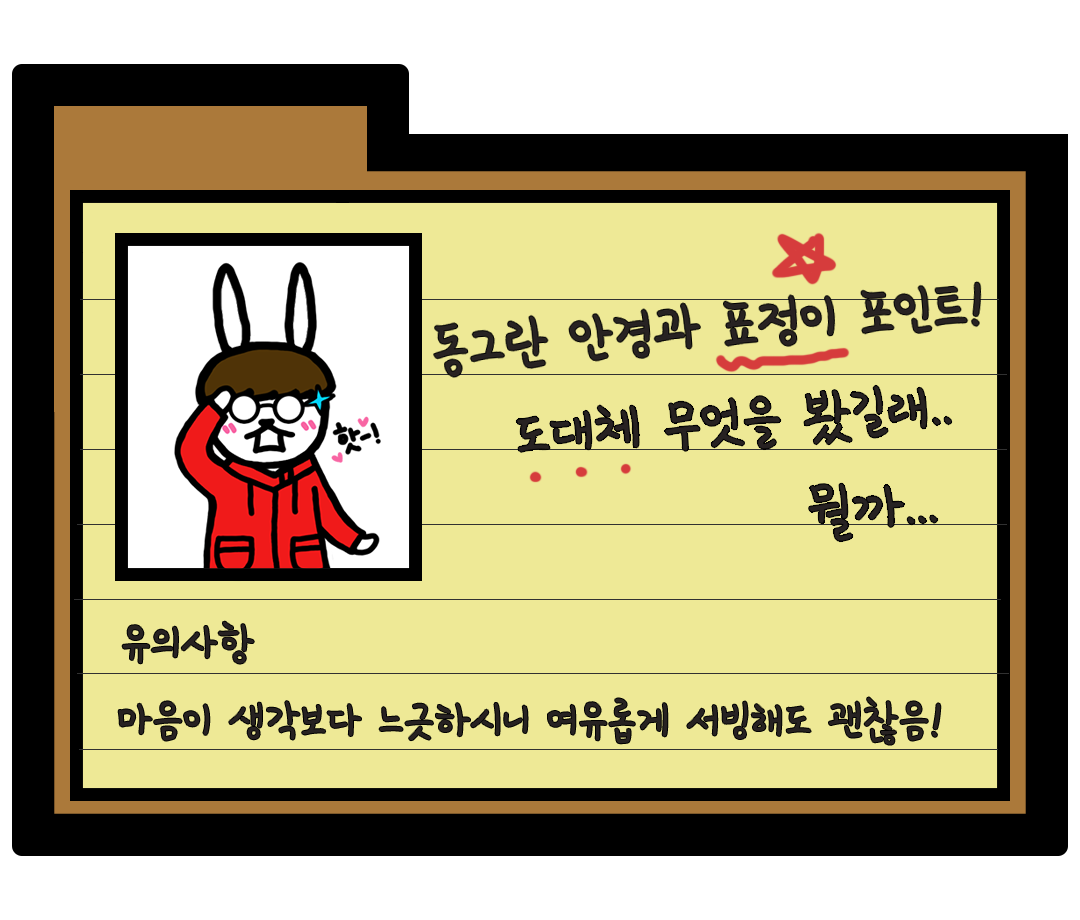 동그란 안경과 표정이 포인트!
핫-!
도대체 무엇을 봤길래..
뭘까...
유의사항
마음이 생각보다 느긋하시니 여유롭게 서빙해도 괜찮음!